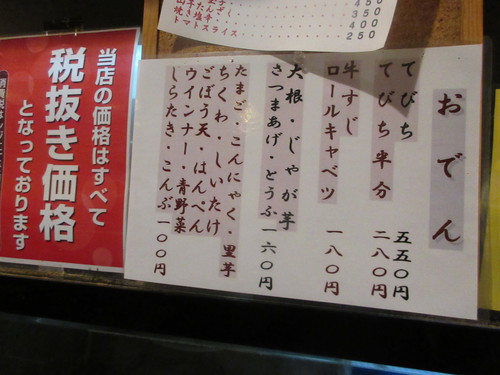 当店の価格はすべて
税抜き価格
となっております
トマトスライス
450
350
400
250
おでん
てびち 五五〇円
てびち半分 二八〇円
牛すじ
ロールキャベツ 一八〇円
大根・じゃが芋
さつまあげ・とうふ 一六〇円
たまご・こんにゃく・里芋
ちくわ・しいたけ
ごぼう天・はんぺん
ウインナー・青野菜
しらたき・こんぶ 一〇〇円